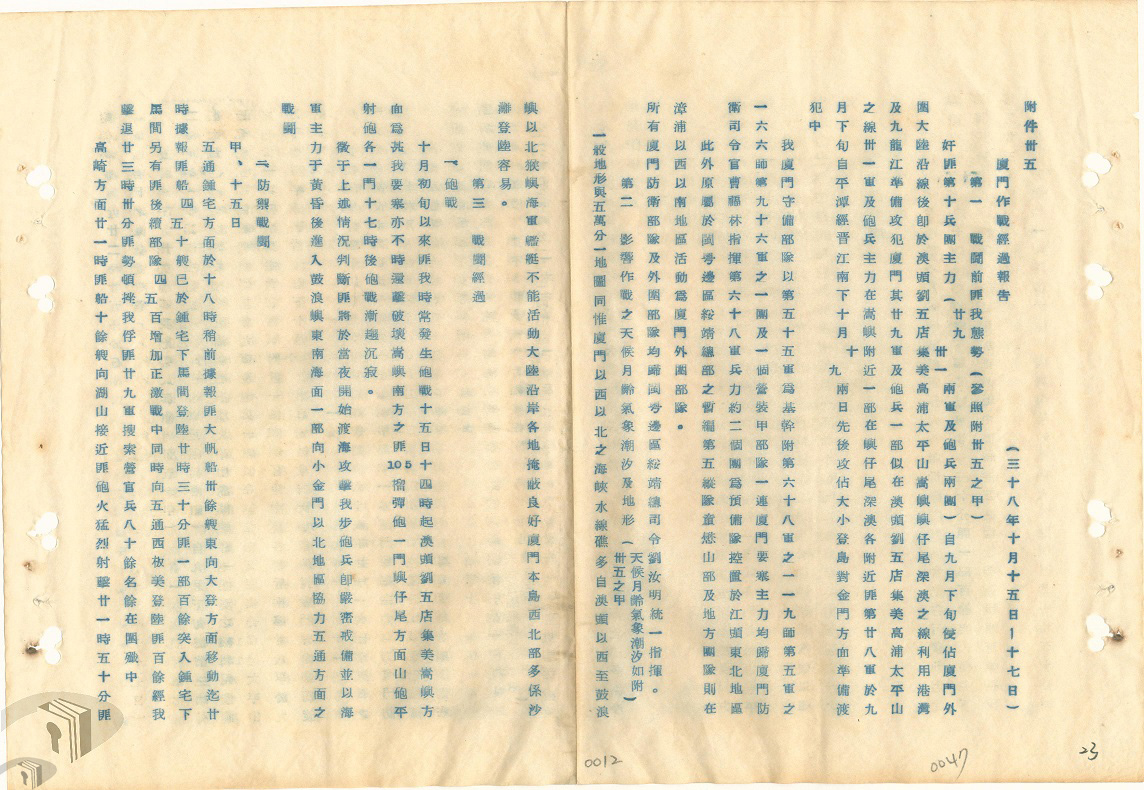 附件卅五
廈門作戰經過報告
(三十八年十月十五日—十七日)
第一 戰鬪前匪我態勢(參照附卅五之甲)
奸匪第十兵團主力(廿九 卅一兩軍及砲兵兩團)自九月下旬侵佔廈門外
圍大陸沿線後卽於澳頭劉五店集美高浦太平山嵩嶼嶼仔尾深澳之線利用港灣
及九龍江準備攻犯廈門其廿九軍及砲兵一部似在澳頭劉五店集美高浦太平山
之線卅一軍及砲兵主力在嵩嶼附近一部在嶼仔尾深澳各附近匪第廿八軍於九
月下旬自平潭經晉江南下十月十 九兩日先後攻佔大小登島對金門方面準備渡
犯中
我廈門守備部隊以第五十五軍爲基幹附第六十八軍之一一九師第五軍之
一六六師第九十六軍之一團及一個營裝甲部隊一連廈門要塞主力均歸廈門防
衛司令官曹福林指揮第六十八軍兵力約二個團爲預備隊控置於江頭東北地區
此外原屬於閩粵邊區綏靖總部之暫編第五縱隊童懋山部及地方團隊則在
漳浦以西以南地區活動爲廈門外圍部隊。
所有廈門防衛部隊及外圍部隊均歸閩粵邊區綏靖總司令劉汝明統一指揮。
第二 影響作戰之天候月齡氣象潮汐及地形(天候月齡氣象潮汐如附
卅五之甲)
一般地形與五萬分一地圖同惟廈門以西以北之海峽水線礁多自澳頭以西至鼓浪
嶼以北猴嶼海軍艦艇不能活動大陸沿岸各地掩蔽良好廈門本島西北部多係沙
灘登陸容易。
第三 戰鬪經過
一、砲戰
十月初旬以來匪我時常發生砲戰十五日十四時起澳頭劉五店集美嵩嶼方
面爲甚我要塞亦不時還擊破壞嵩嶼南方之匪105榴彈砲一門嶼仔尾方面山砲平
射砲各一門十七時後砲戰漸趨沉寂。
徵于上述情況判斷匪將於當夜開始渡海攻擊我步砲兵卽嚴密戒備並以海
軍主力于黃昏後進入鼓浪嶼東南海面一部向小金門以北地區協力五通方面之
戰鬪
二、防禦戰鬪
甲、十五日
五通鍾宅方面於十八時稍前據報匪大帆船卅餘艘東向大登方面移動迄廿
時據報匪船四 五十艘已於鍾宅下馬間登陸廿時三十分匪一部百餘突入鍾宅下
馬間另有匪後續部隊四 五百增加正激戰中同時向五通西板美登陸匪百餘經我
擊退廿三時卅分匪勢頓挫我俘匪廿九軍搜索營官兵八十餘名餘在圍殲中
高崎方面廿一時匪船十餘艘向湖山接近匪砲火猛烈射擊廿一時五十分匪
0012
0047
23